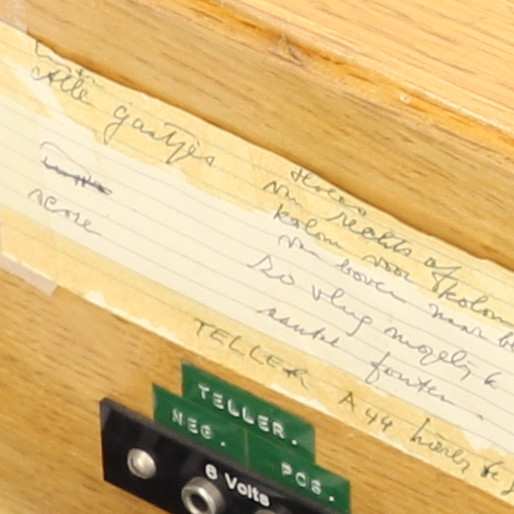 Alle gaatjes
van rechts af
kolom voor kolom
van boven naar
zo vlug mogelijk
aantal fouten.
score
TELLER A44
TELLER.
NEG.
POS.
6 Volts